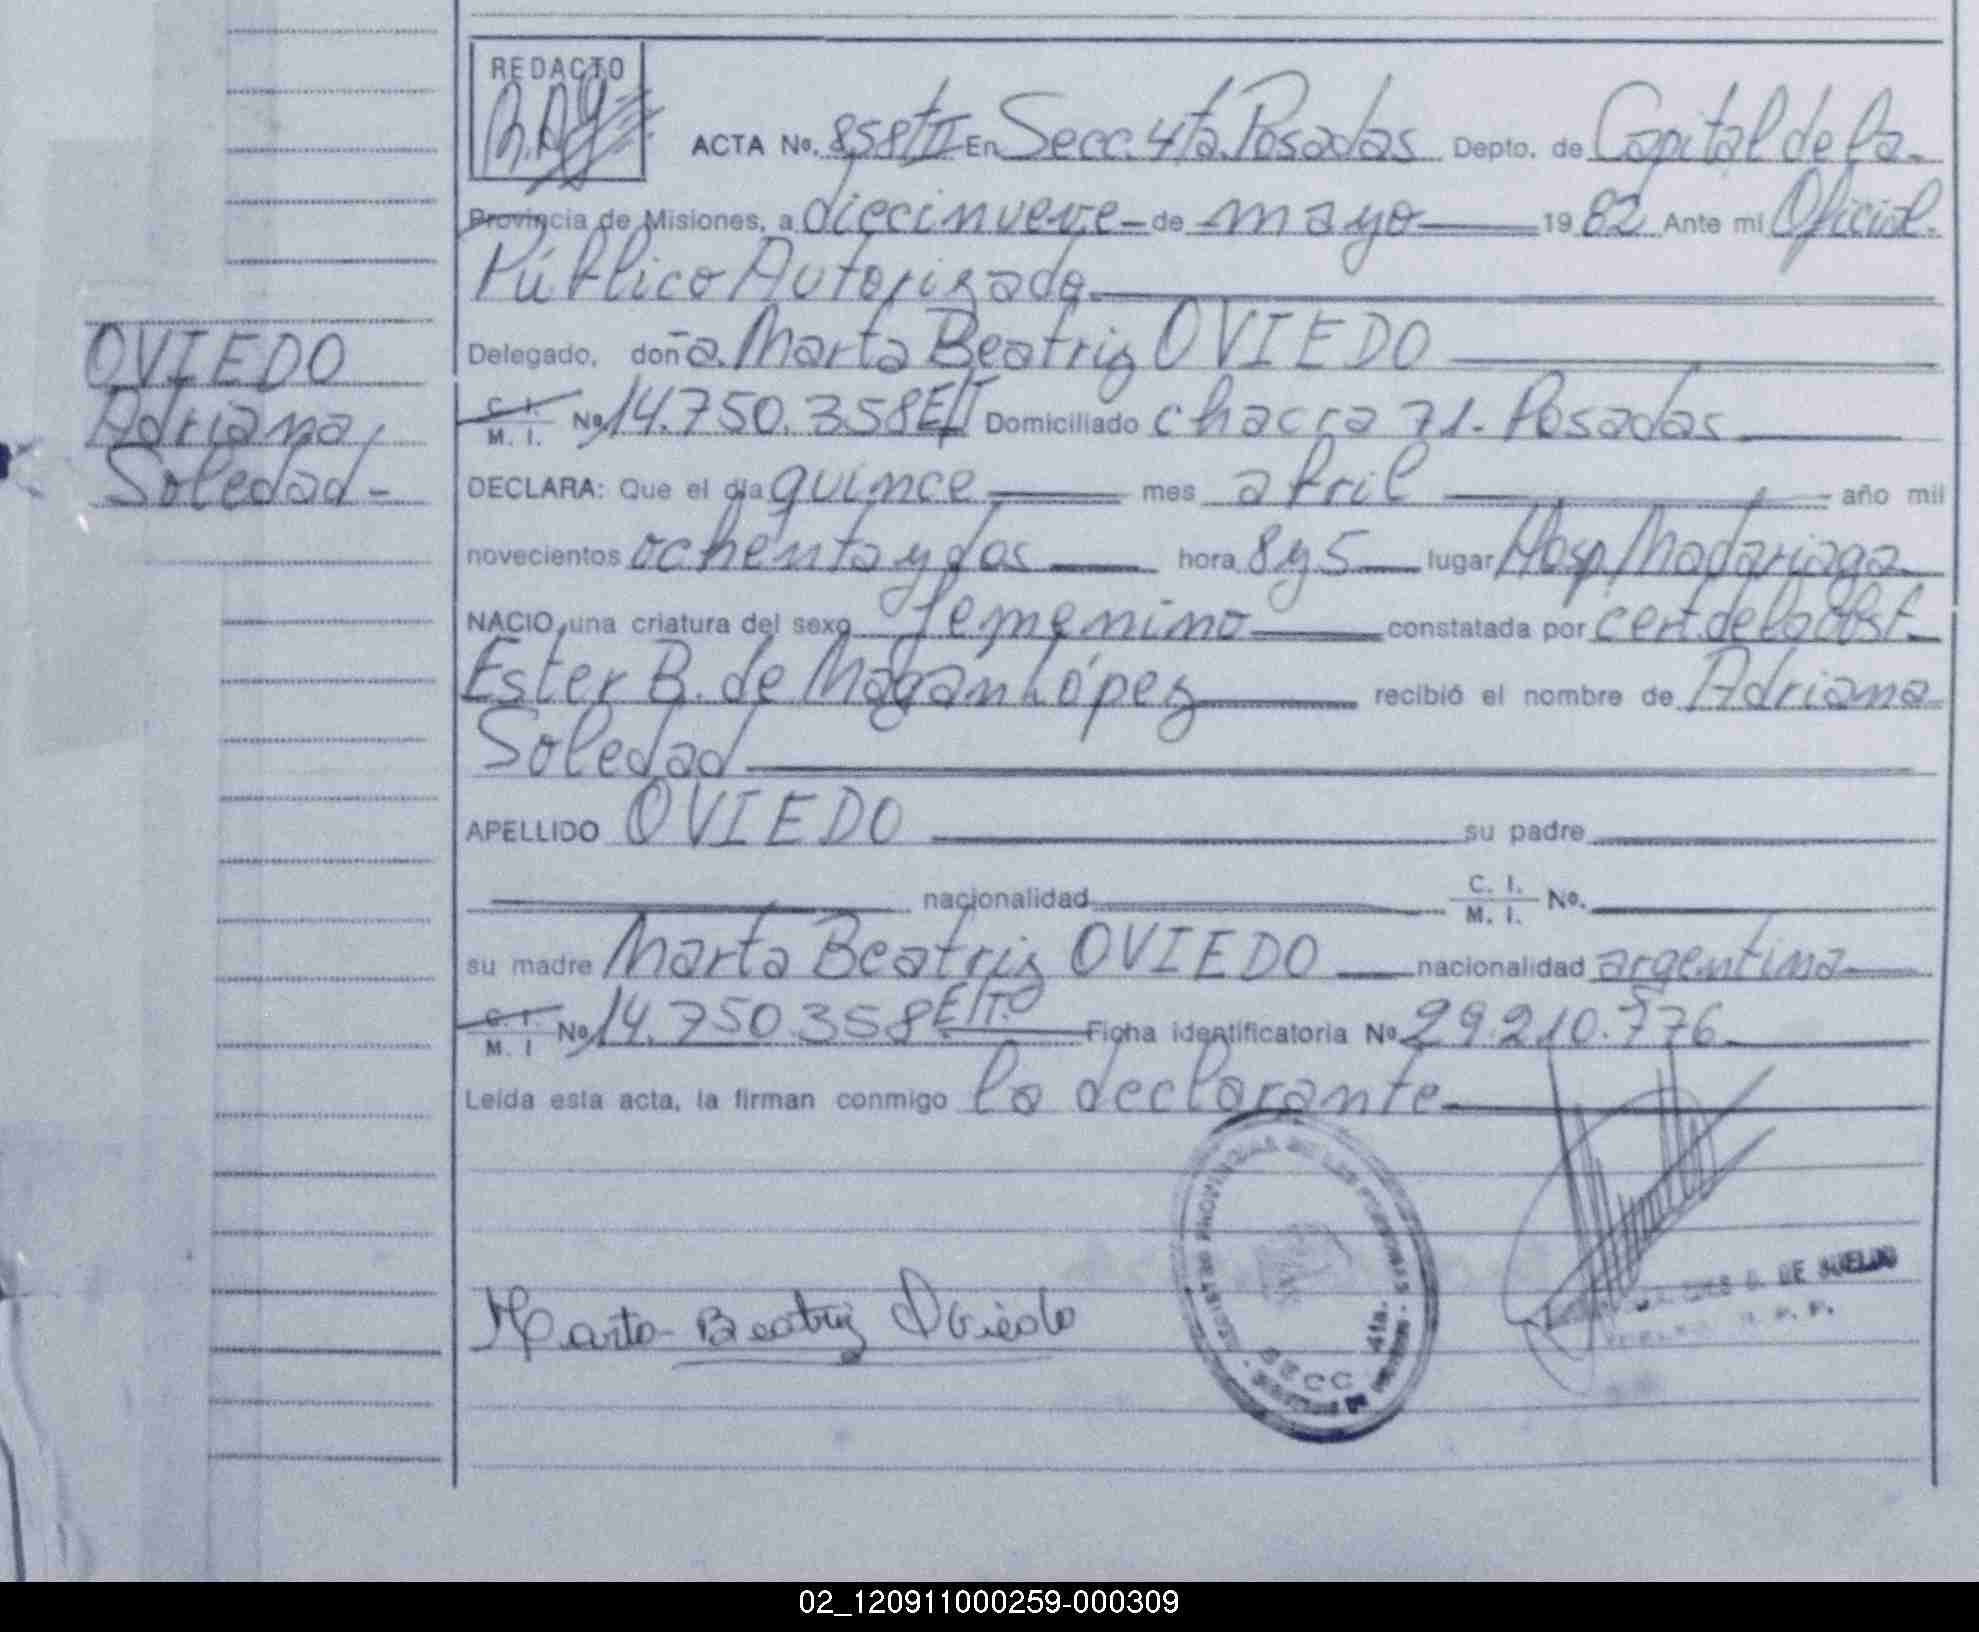 REDACTO
ACTA No. 858 t II En Secc. 4ta. Posadas Depto. de Capital de la
Provincia de Misiones, a diecinueve de mayo 1982 Ante mi Oficial
Público Autorizado
Delegado, doña Marta Beatriz OVIEDO
C. I. / M. I. No 14.750.358 E/T Domiciliado chacra 71. Posadas
DECLARA: Que el día quince mes abril año mil
novecientos ochenta y dos hora 8 y 5 lugar Hosp. Madariaga
NACIO una criatura del sexo femenino constatada por cert. de la Obst.
Ester B. de Magan López recibió el nombre de Adriana
Soledad
APELLIDO OVIEDO su padre
nacionalidad C. I. / M. I. No.
su madre Marta Beatriz OVIEDO nacionalidad argentina
C. I. / M. I No 14.750.358 E/T.O Ficha identificatoria No 29.210.776
Leída esta acta, la firman conmigo la declarante
OVIEDO
Adriana
Soledad -
Marta Beatriz Oviedo
SECC 4ta.
DE SUELDO
02_120911000259-000309